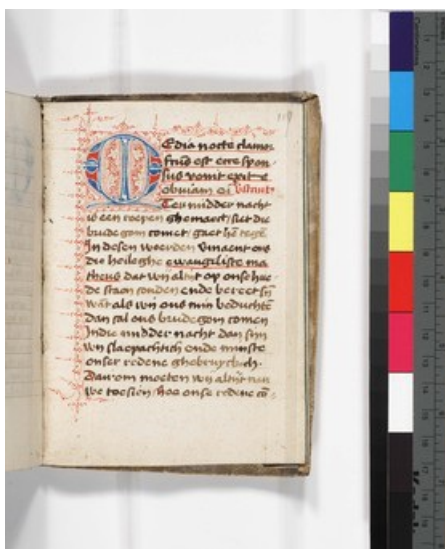 Media nocte clamor
ftus est ecce spon
sus venit exite
obuiam ei
Ter midder nacht
is een roepen ghemaect siet die
brudegom comet gaet hē tegē
In desen woerden vmaent ons
die heileghe ewangeliste ma
theus dat wy altijt op onse hue
de staen souden ende bereet sijn
wāt als wy ons min beduchtē
dan sal ons brudegom comen
Indie midder nacht dan sijn
wy slaepachtich ende minste
onser redene ghebruyckich
Daerom moeten wy altijt
we toesien hoe onse redene
Kodak